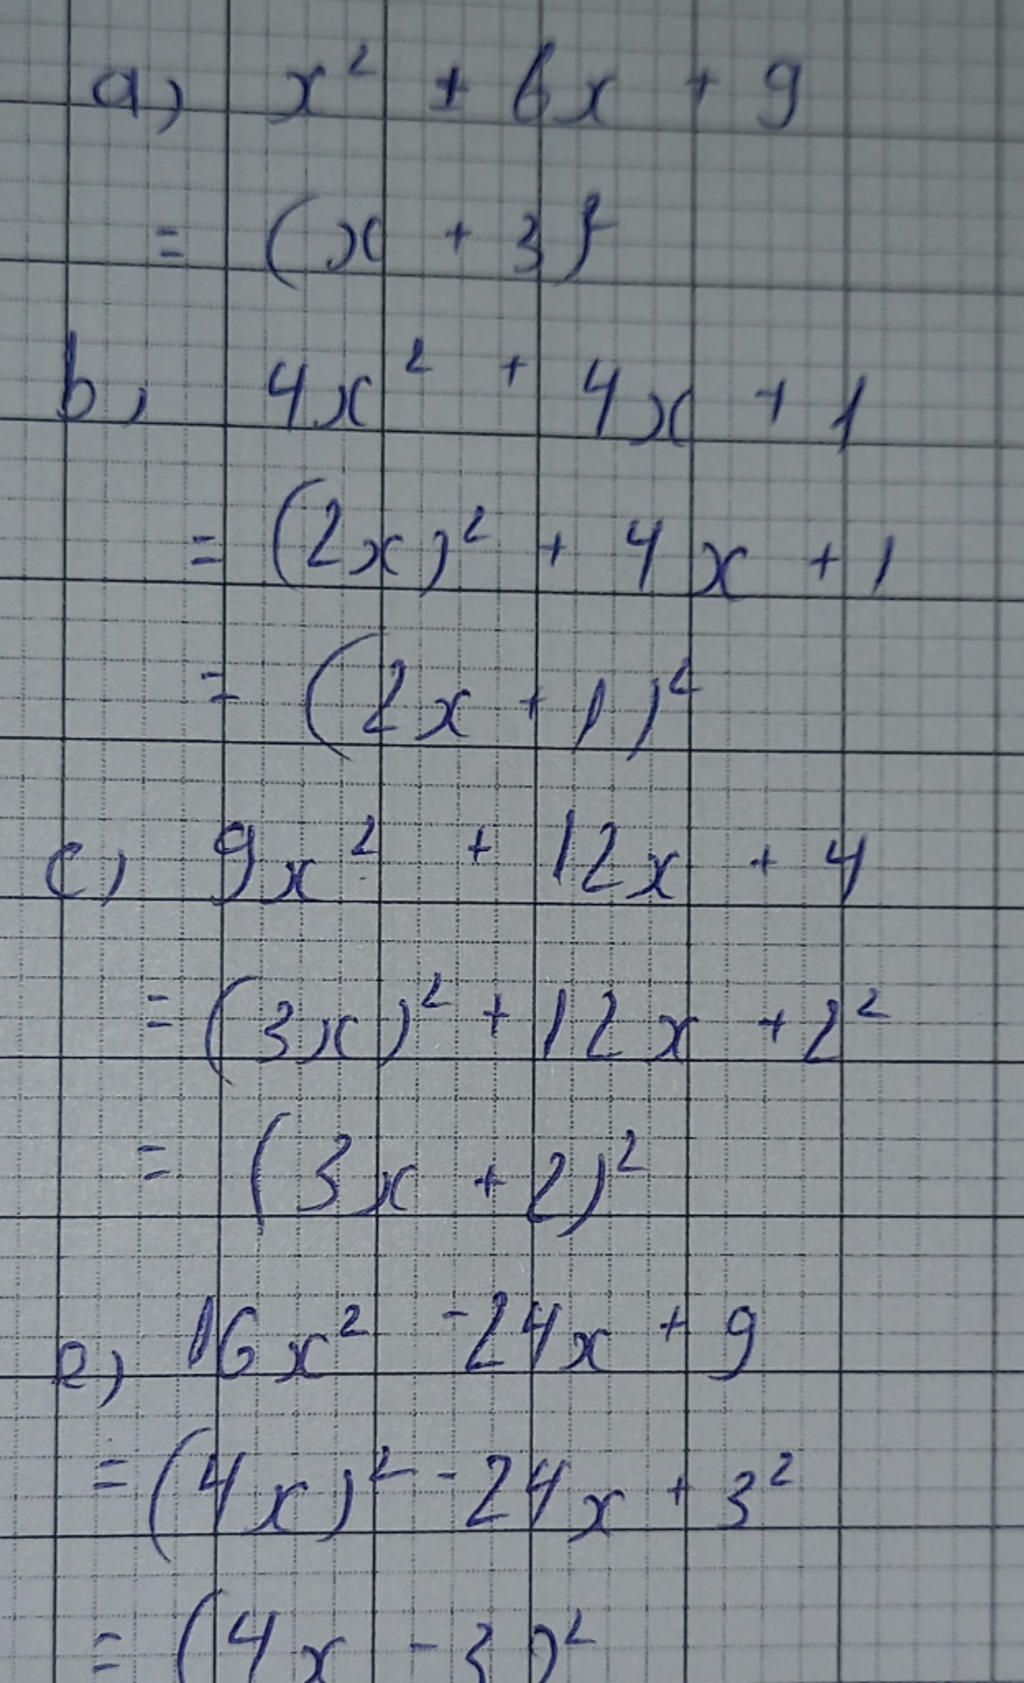 a) x² + 6x + 9
= (x + 3)²
b) 4x² + 4x + 1
= (2x)² + 4x + 1
= (2x + 1)²
c) 9x² + 12x + 4
= (3x)² + 12x + 2²
= (3x + 2)²
e) 16x² - 24x + 9
= (4x)² - 24x + 3²
= (4x - 3)²